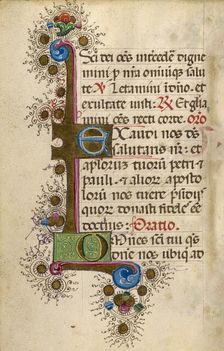 Sci dei oēs intercedē digne
mini p nr̄a omniūqȝ salu
te ℣ Letamini in dn̄o et
exultate iusti ℟ Et glia
mini oēs recti corde. Oro
Exaudi nos ds̄
salutaris nr̄: et
aplorum tuorū petri et
pauli et alioꝝ aposto
lorū nos tuere presidijs
quoꝝ donasti fideles eē
doctrinis: Oratio.
Omnes sci tui qs̄
dn̄e nos ubiqȝ ad